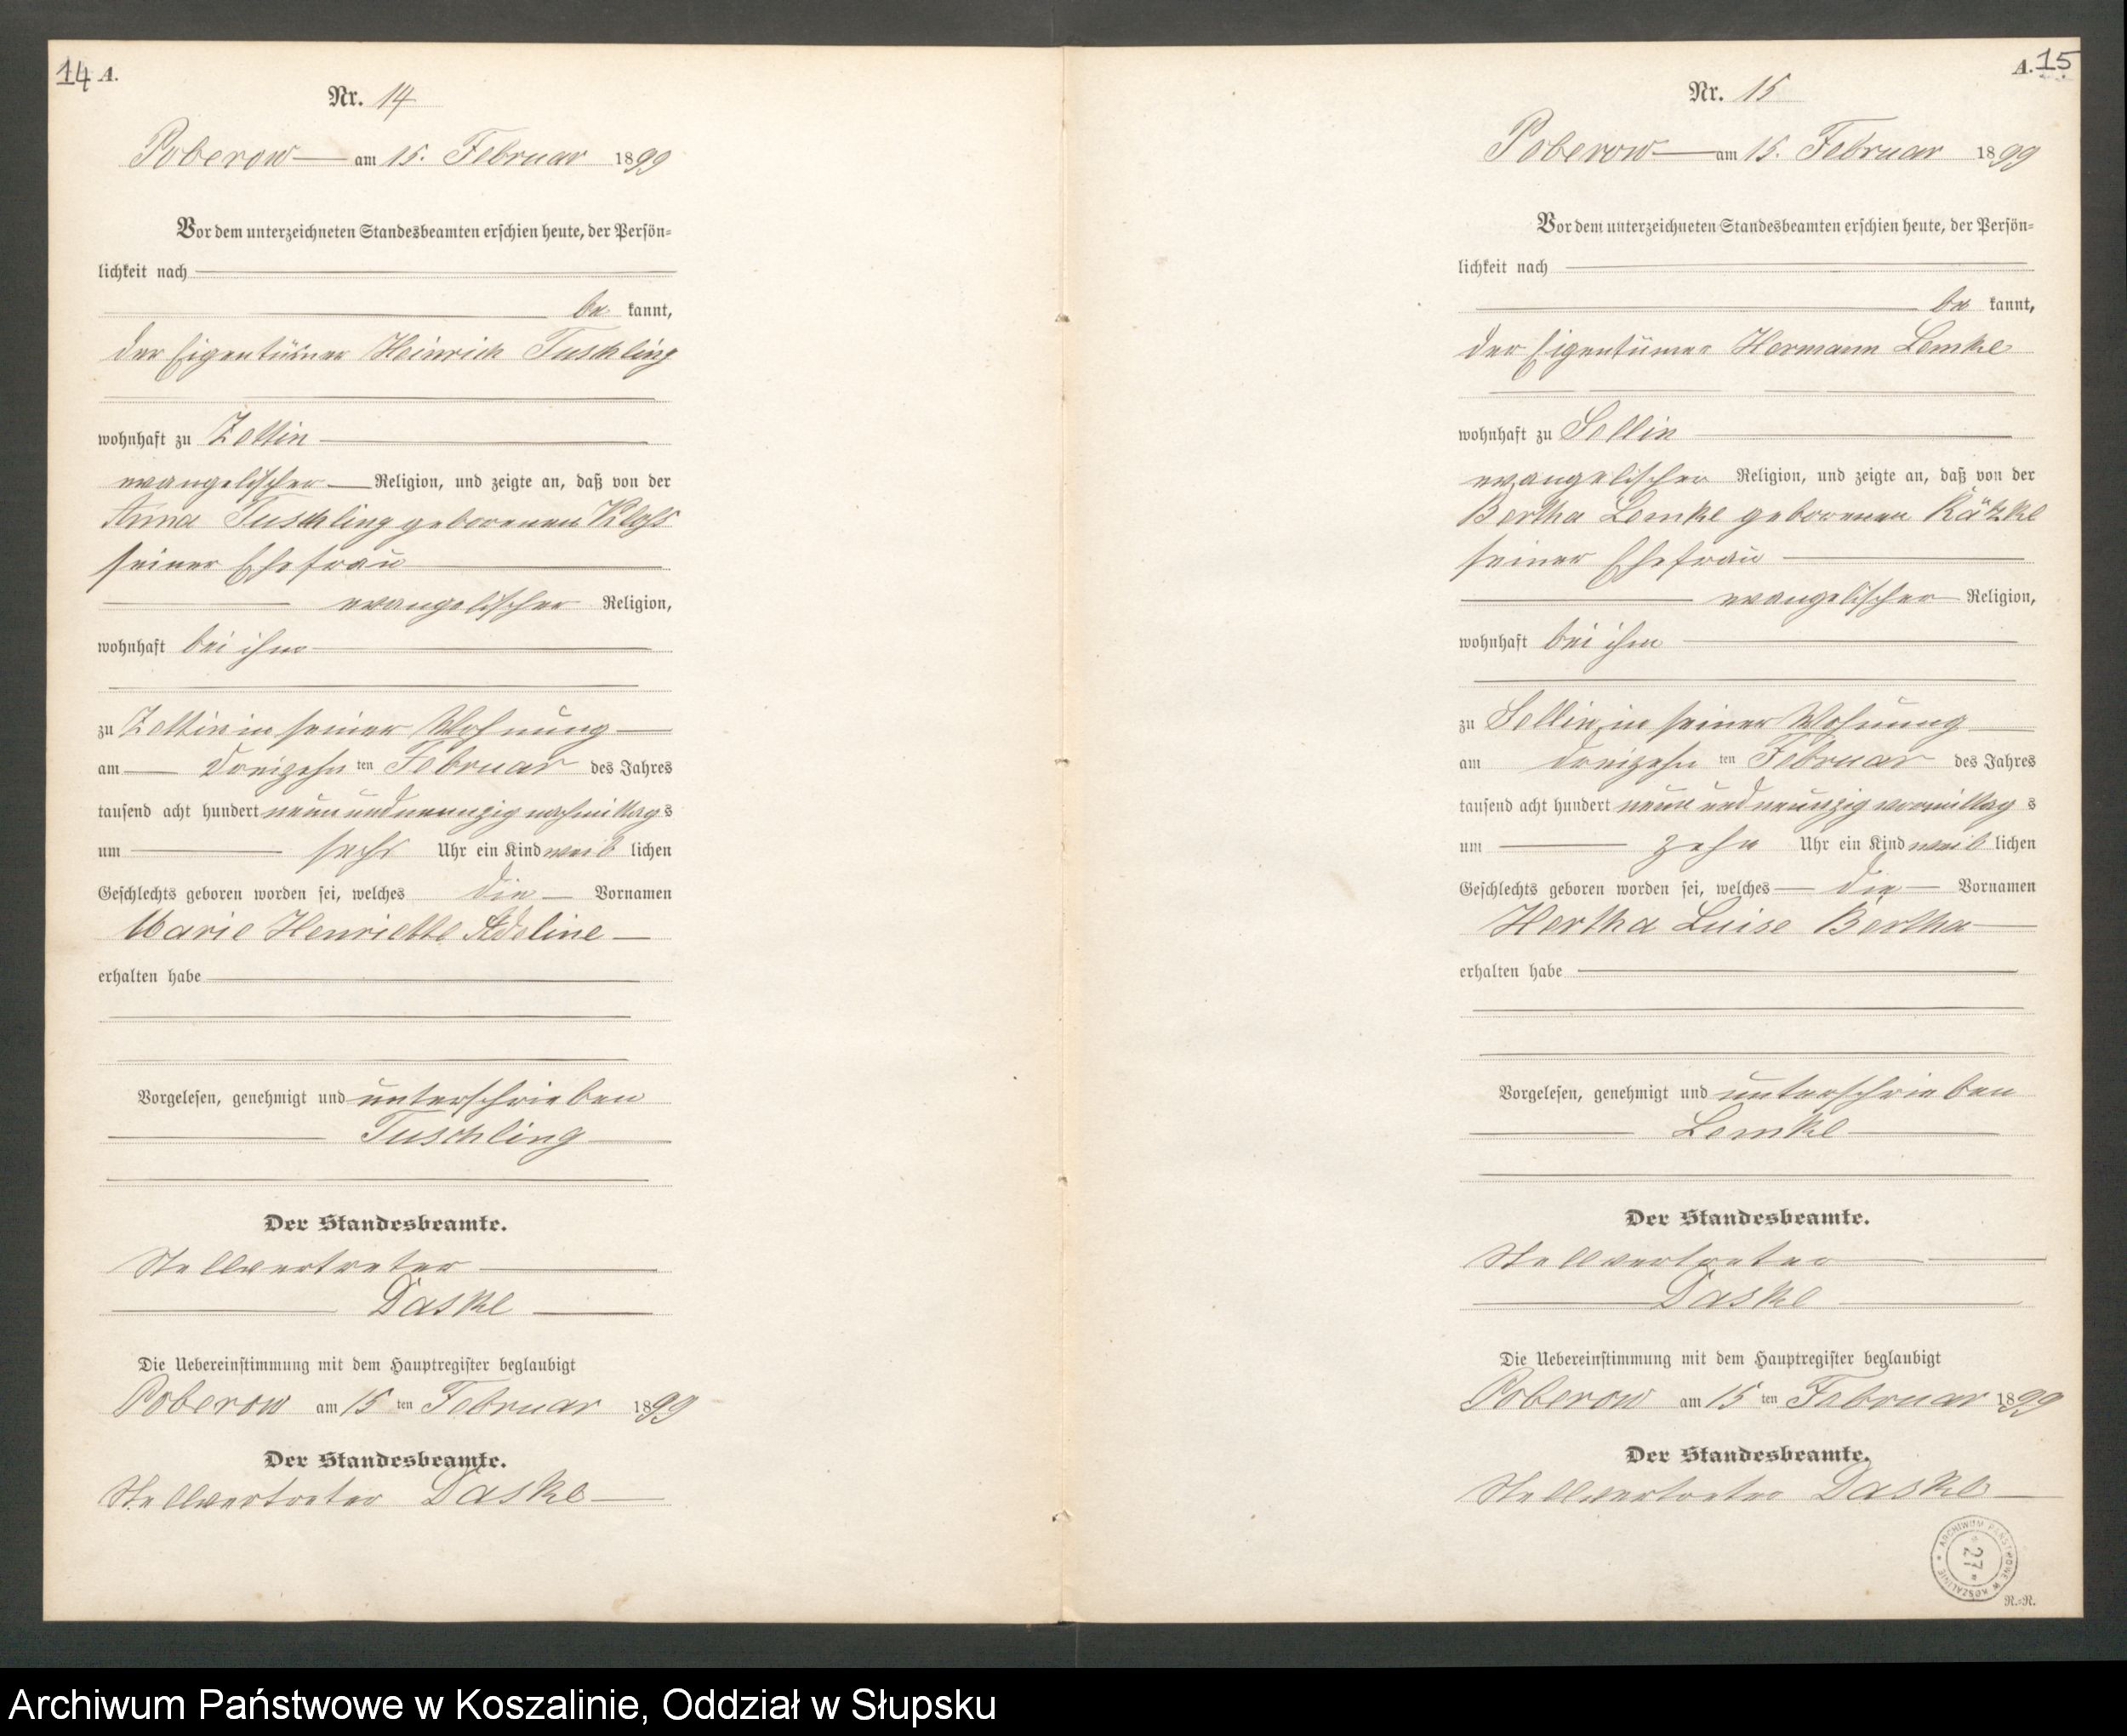 14 A.
Nr. 14
Poberow am 15. Februar 1899
Vor dem unterzeichneten Standesbeamten erschien heute, der Persön-
lichkeit nach
be kannt,
der Eigentümer Heinrich Tuschling
wohnhaft zu Zettin
evangelischer Religion, und zeigte an, daß von der
Anna Tuschling geborenen
seiner Ehefrau
evangelischer Religion,
wohnhaft bei ihm
zu Zettin in seiner Wohnung
am dreizehn ten Februar des Jahres
tausend acht hundert neun und neunzig nachmittag s
um sechs Uhr ein Kind weib lichen
Geschlechts geboren worden sei, welches die Vornamen
Marie Henriette Adeline
erhalten habe
Vorgelesen, genehmigt und unterschrieben
Tuschling
Der Standesbeamte.
Stellvertreter
Daske
Die Uebereinstimmung mit dem Hauptregister beglaubigt
Poberow am 15 ten Februar 1899
Der Standesbeamte.
Stellvertreter Daske
A. 15
Nr. 15
Poberow am 15. Februar 1899
Vor dem unterzeichneten Standesbeamten erschien heute, der Persön-
lichkeit nach
be kannt,
der Eigentümer Hermann Lemke
wohnhaft zu Sellin
evangelischer Religion, und zeigte an, daß von der
Bertha Lemke geborenen Rätzke
seiner Ehefrau
evangelischer Religion,
wohnhaft bei ihm
zu Sellin, in seiner Wohnung
am dreizehn ten Februar des Jahres
tausend acht hundert neun und neunzig vormittag s
um zehn Uhr ein Kind weib lichen
Geschlechts geboren worden sei, welches die Vornamen
Hertha Luise Bertha
erhalten habe
Vorgelesen, genehmigt und unterschrieben
Lemke
Der Standesbeamte.
Stellvertreter
Daske
Die Uebereinstimmung mit dem Hauptregister beglaubigt
Poberow am 15 ten Februar 1899
Der Standesbeamte.
Stellvertreter Daske
ARCHIWUM PAŃSTWOWE W KOSZALINIE
* 27 *
R.-R.
Archiwum Państwowe w Koszalinie, Oddział w Słupsku